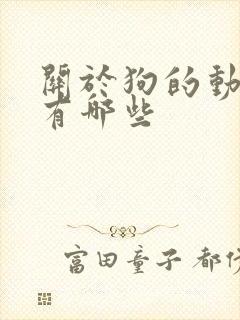 關於狗的動
有哪些
富田童子 都